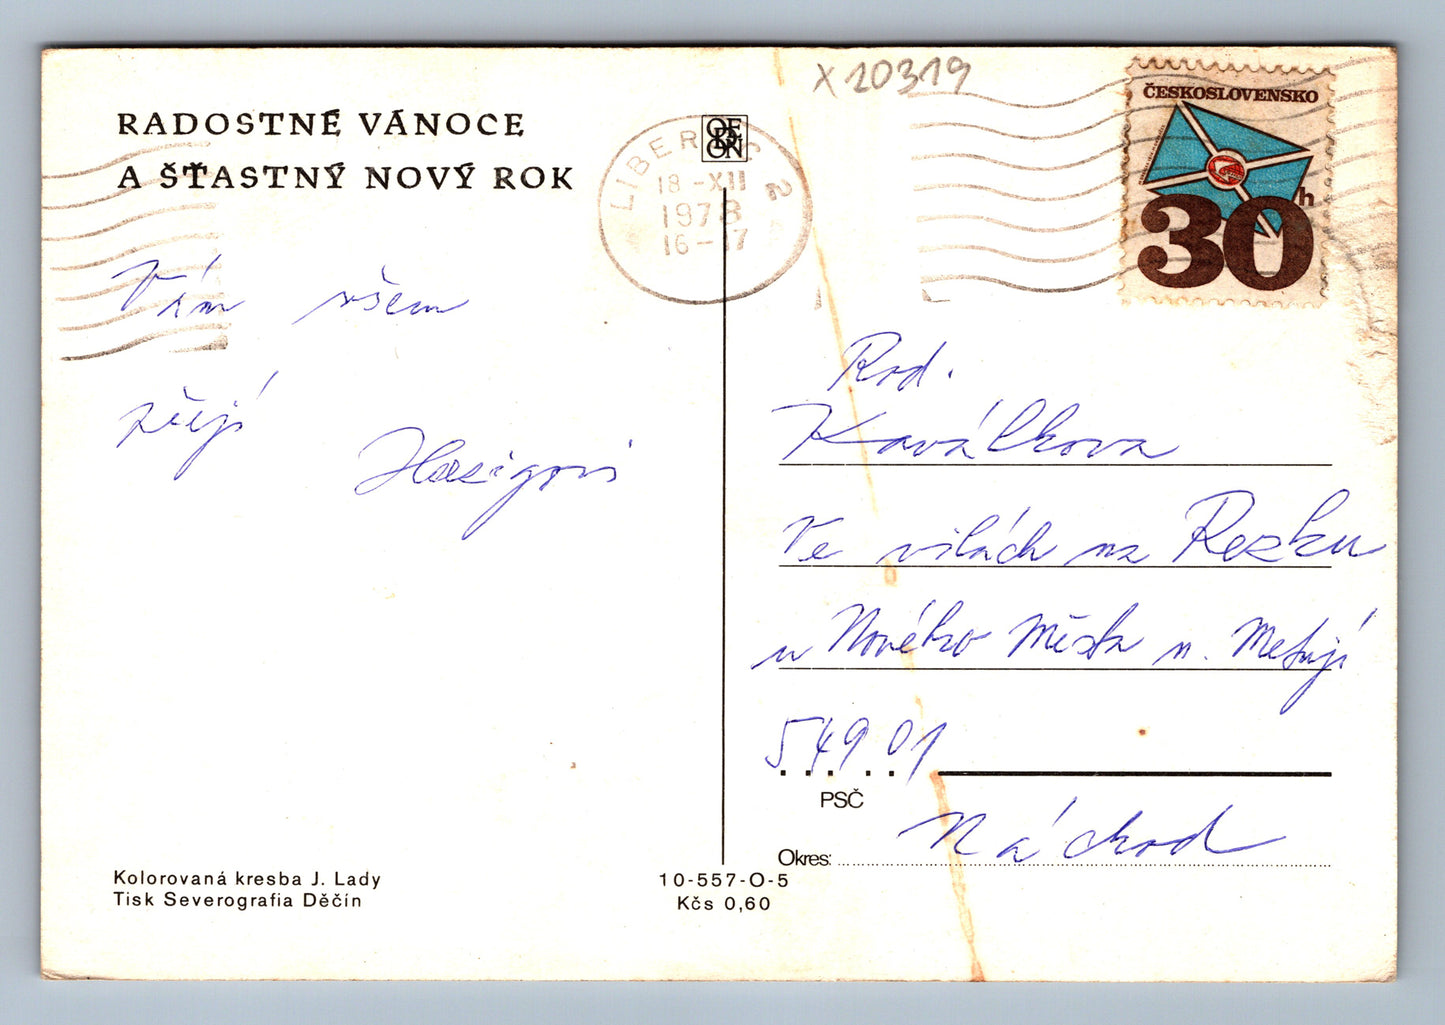 X 20319
ČESKOSLOVENSKO
30h
RADOSTNÉ VÁNOCE
A ŠŤASTNÝ NOVÝ ROK
ORBON
LIBEREC 2
18-XII
1978
16-17
Vám všem
přejí
Rod.
Kaválkova
Ve vilách na Rezku
u Nového Města n. Metují
549 01
PSČ
Okres: Náchod
Kolorovaná kresba J. Lady
Tisk Severografia Děčín
10-557-O-5
Kčs 0,60